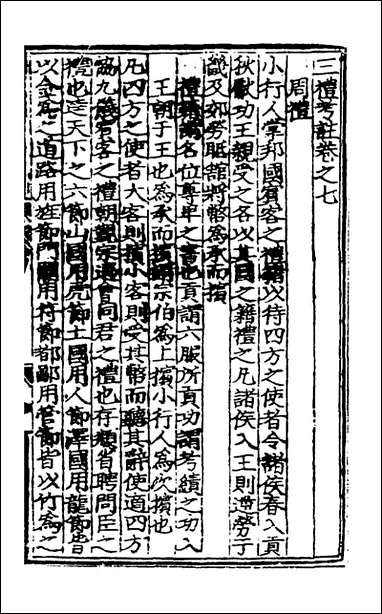 三禮考註卷之七
周禮
小行人掌邦國賓客之禮籍以待四方之使者令諸侯春入貢
秋獻功王親受之各以其國之籍禮之凡諸侯入王則逆勞于
畿及郊勞眡館將幣為承而擯
禮籍謂名位尊卑之書也貢謂六服所貢功謂考績之功入
王朝于王也為承而擯謂宗伯為上擯小行人為次擯也
凡四方之使者大客則擯小客則受其幣而聽其辭使適四方
協九儀賓客之禮朝覲宗遇會同君之禮也存頫省聘問臣之
禮也達天下之六節山國用虎節土國用人節澤國用龍節皆
以金為之道路用旌節門關用符節都鄙用管節皆以竹為之